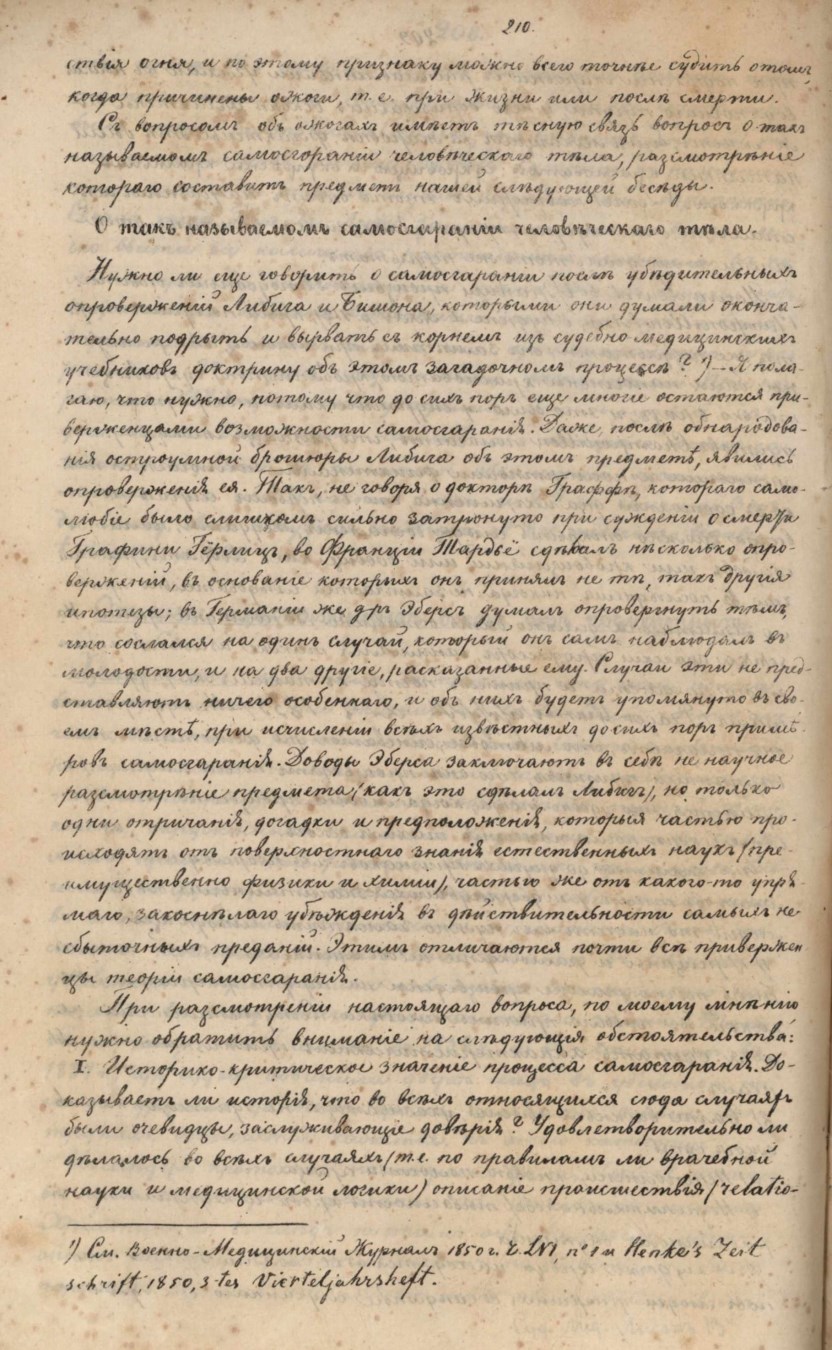 210.
ствія огня, и по этому признаку можно всего точнѣе судить о томъ
когда причинены ожоги, т. е. при жизни или послѣ смерти.
Съ вопросомъ объ ожогахъ имѣетъ тѣсную связь вопросъ о такъ
называемомъ самосгораніи человѣческаго тѣла, разсмотрѣніе
котораго составитъ предметъ нашей слѣдующей бесѣды.
О такъ называемомъ самосгараніи человѣческаго тѣла.
Нужно ли еще говорить о самосгараніи послѣ убѣдительныхъ
опроверженій Либига и Бишона, которыми они думали оконча-
тельно подрыть и вырвать съ корнемъ изъ судебно медицинскихъ
учебниковъ доктрину объ этомъ загадочномъ процессѣ? ¹) — Я пола-
гаю, что нужно, потому что до сихъ поръ еще многіе остаются при-
верженцами возможности самосгаранія. Даже послѣ обнародова-
нія остроумной брошюры Либига объ этомъ предметѣ, явились
опроверженія ея. Такъ, не говоря о докторѣ Граффѣ, котораго само-
любіе было слишкомъ сильно затронуто при сужденіи о смерти
Графини Гёрлицъ, во Франціи Тардьё сдѣлалъ нѣсколько опро-
верженій, въ основаніе которыхъ онъ принялъ не тѣ, такъ другія
ипотезы; въ Германіи же д-ръ Эберсъ думалъ опровергнуть тѣмъ,
что сослался на одинъ случай, который онъ самъ наблюдалъ въ
молодости, и на два другіе, расказанные ему. Случаи эти не пред-
ставляютъ ничего особеннаго, и объ нихъ будетъ упомянуто въ сво-
емъ мѣстѣ, при исчисленіи всѣхъ извѣстныхъ до сихъ поръ примѣ-
ровъ самосгаранія. Доводы Эберса заключаютъ въ себѣ не научное
разсмотрѣніе предмета /какъ это сдѣлалъ Либигъ/, но только
одни отрицанія, догадки и предположенія, которыя частью про-
исходятъ отъ поверхностнаго знанія естественныхъ наукъ /пре-
имущественно физики и химіи/, частью же отъ какого-то упря-
маго, закоснѣлаго убѣжденія въ дѣйствительности самыхъ не
сбыточныхъ преданій. Этимъ отличаются почти всѣ привержен
цы теоріи самосгаранія.
При разсмотреніи настоящаго вопроса, по моему мнѣнію
нужно обратить вниманіе на слѣдующія обстоятельства:
I. Историко-критическое значеніе процесса самосгаранія. До-
казываетъ ли исторія, что во всѣхъ относящихся сюда случаяхъ
были очевидцы, заслуживающіе довѣрія? Удовлетворительно ли
дѣлалось во всѣхъ случаяхъ /т.е. по правиламъ ли врачебной
науки и медицинской логики/ описаніе происшествія /relatio-
¹) См. Военно-Медицинскій Журналъ 1850 г. Ч. LVI, nº 1 и Henke's Zeit
schrift, 1850, 3-tes Vierteljahrsheft.